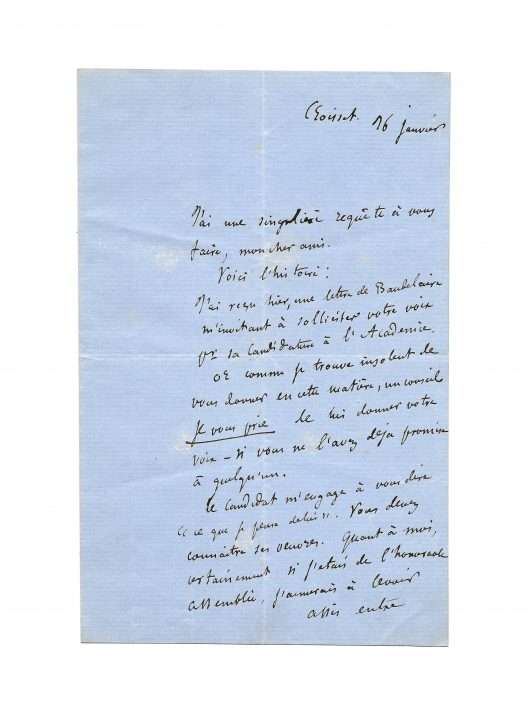 Croisset. 16 janvier
J'ai une singulière requête à vous
faire, mon cher ami.
Voici l'histoire :
J'ai reçu hier, une lettre de Baudelaire
m'invitant à solliciter votre voix
pr sa candidature à l'Académie.
or comme je trouve insolent de
vous donner en cette matière, un conseil
je vous prie de lui donner votre
voix – si vous ne l'avez déjà promise
à quelqu'un.
Le candidat m'engage à vous dire
« ce que je pense de lui ». Vous devez
connaître ses œuvres. Quant à moi,
certainement si j'étais de l'honorable
assemblée, j'aimerais à le voir
assis entre